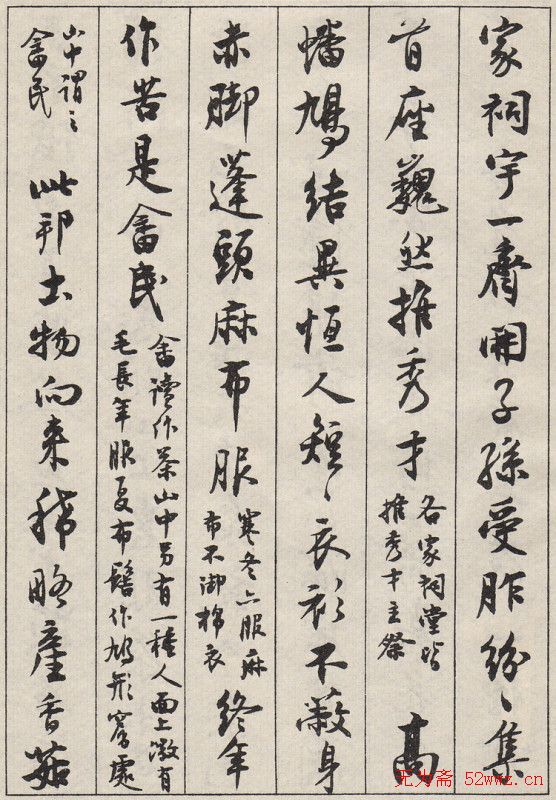 家祠宇一齊開子孫受胙紛〻集
首座巍然推秀才
各家祠堂皆
推秀才主祭
高
幡鳩結異恒人短〻衣衫不蔽身
赤脚蓬頭麻布服
寒冬亦服麻
布不御棉衣
終年
作苦是畲民
畲讀作茶山中另有一種人面上微有
毛長年服夏布髻作鳩形窩處
山中謂之
畲民
此邦土物向来稀略產香菇
无为斋 52wwz.cn